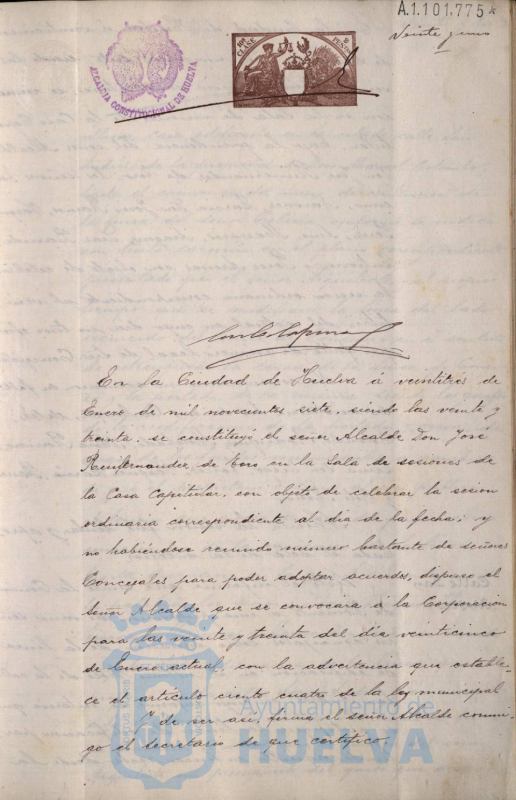 A.1.101,775*
Veinte y uno
10ª CLASE
2 PESETAS
ALCALDIA CONSTITUCIONAL DE HUELVA
En la Ciudad de Huelva á veintitrés de
Enero de mil novecientos siete, siendo las veinte y
treinta, se constituyó el señor Alcalde Don José
de Toro en la Sala de sesiones de
la Casa Capitular, con objeto de celebrar la sesion
ordinaria correspondiente al dia de la fecha; y
no habiéndose reunido número bastante de señores
Concejales para poder adoptar acuerdos, dispuso el
Señor Alcalde que se convocara á la Corporacion
para las veinte y treinta del día veinticinco
de Enero actual, con la advertencia que estable-
ce el artículo ciento cuatro de la ley municipal
Y de ser asi, firma el señor Alcalde conmi-
go el Secretario de que certifico.
Ayuntamiento de
HUELVA